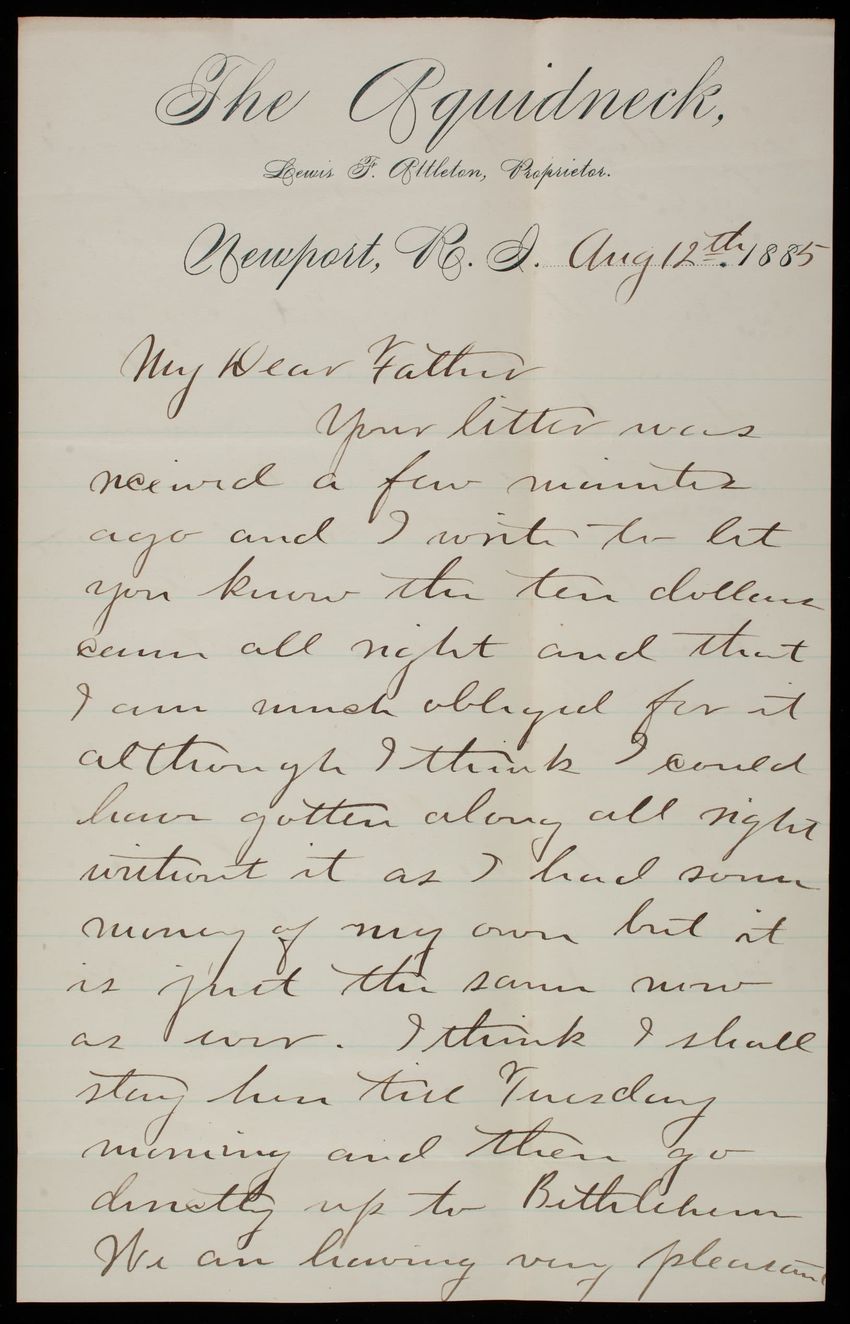 The Aquidneck,
Lewis F. Attleton, Proprietor.
Newport, R. I. Aug 12th. 1885
My Dear Father
Your letter was
received a few minutes
ago and I write to let
you know the ten dollars
came all right and that
I am much obliged for it
although I think I could
have gotten along all right
without it as I had some
money of my own but it
is just the same now
as ever. I think I shall
stay here till Tuesday
morning and then go
directly up to Bethlehem
We are having very pleasant